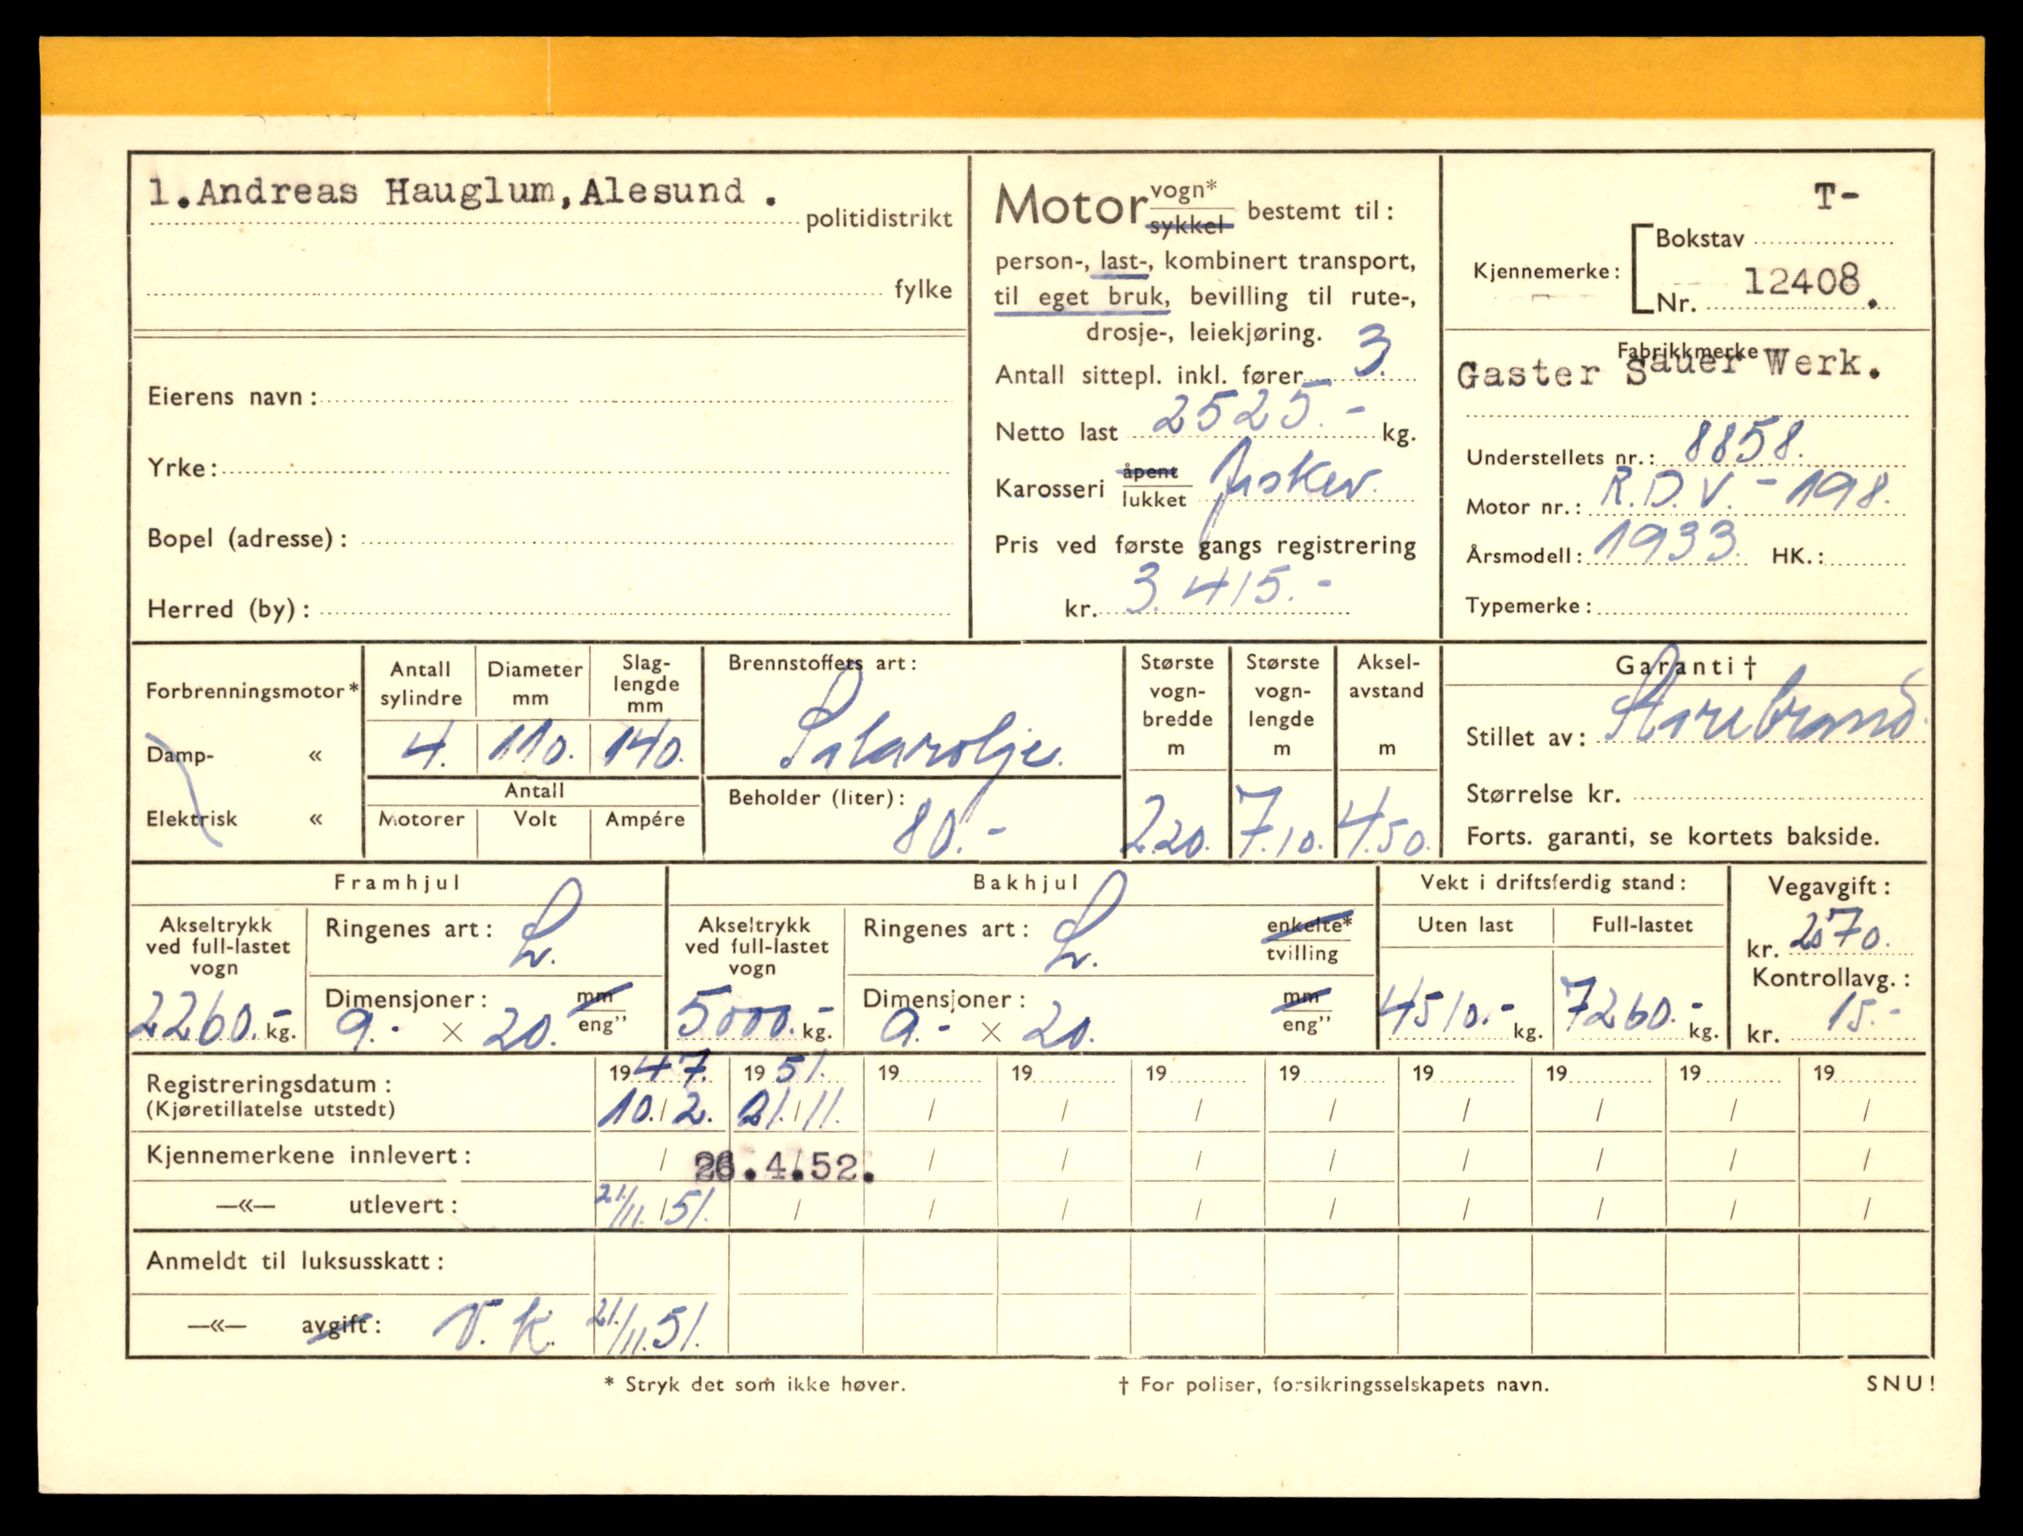 1.Andreas Hauglum,Alesund .
politidistrikt
fylke
Eierens navn :
Yrke :
Bopel (adresse) :
Herred (by) :
Motor vogn* sykkel bestemt til :
person-, last-, kombinert transport,
til eget bruk, bevilling til rute-,
drosje-, leiekjøring.
Antall sittepl. inkl. fører 3.
Netto last 2525.- kg.
Karosseri åpent lukket
Pris ved første gangs registrering
kr. 3.415.-
Kjennemerke :
Bokstav T-
Nr. 12408.
Fabrikkmerke
Gaster Sauer Werk.
Understellets nr. : 8858.
Motor nr. : R.D.V. - 198.
Årsmodell : 1933. HK. :
Typemerke :
Forbrenningsmotor*
Damp- «
Elektrisk «
Antall sylindre 4.
Diameter mm 110.
Slag-lengde mm 140.
Antall
Motorer Volt Ampére
Brennstoffets art :
Solarolje.
Beholder (liter) : 80.-
Største vogn-bredde m 2.20.
Største vogn-lengde m 7.10.
Aksel-avstand m 4.50.
Garanti †
Stillet av : Storebrand.
Størrelse kr.
Forts. garanti, se kortets bakside.
Framhjul
Akseltrykk ved full-lastet vogn 2260.- kg.
Ringenes art : L.
Dimensjoner : 9.- × 20. mm eng’’
Bakhjul
Akseltrykk ved full-lastet vogn 5000.- kg.
Ringenes art : L. enkelte* tvilling
Dimensjoner : 9.- × 20. mm eng’’
Vekt i driftsferdig stand :
Uten last 4510.- kg.
Full-lastet 7260.- kg.
Vegavgift :
kr. 270.
Kontrollavg. :
kr. 15.-
Registreringsdatum : 1947. 1951. 19 19 19 19 19 19 19 19
(Kjøretillatelse utstedt) 10./2. 21./11. / / / / / / / /
Kjennemerkene innlevert : / 26.4.52. / / / / / / / /
—«— utlevert : 21./11. 51. / / / / / / / / /
Anmeldt til luksusskatt :
—«— avgift : V. K. 21./11. 51.
* Stryk det som ikke høver.
† For poliser, forsikringsselskapets navn.
SNU!